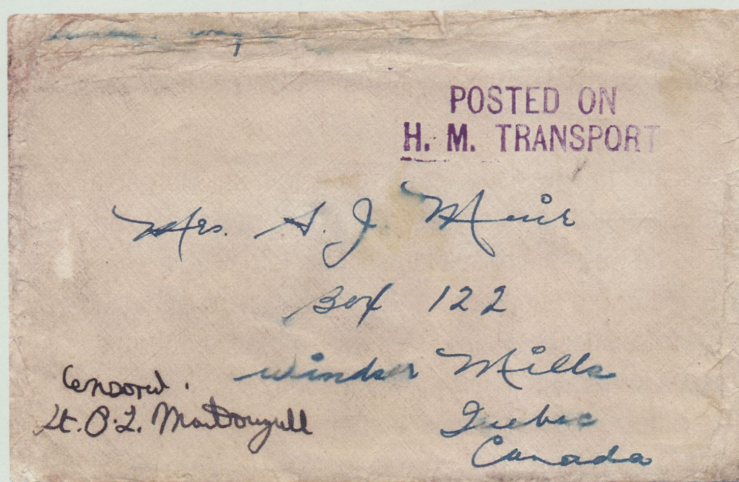 POSTED ON
H. M. TRANSPORT
Mrs. A. J. Muir
Box 122
Windsor Mills
Quebec
Canada
Censored.
Lt. O. L. MacDougall